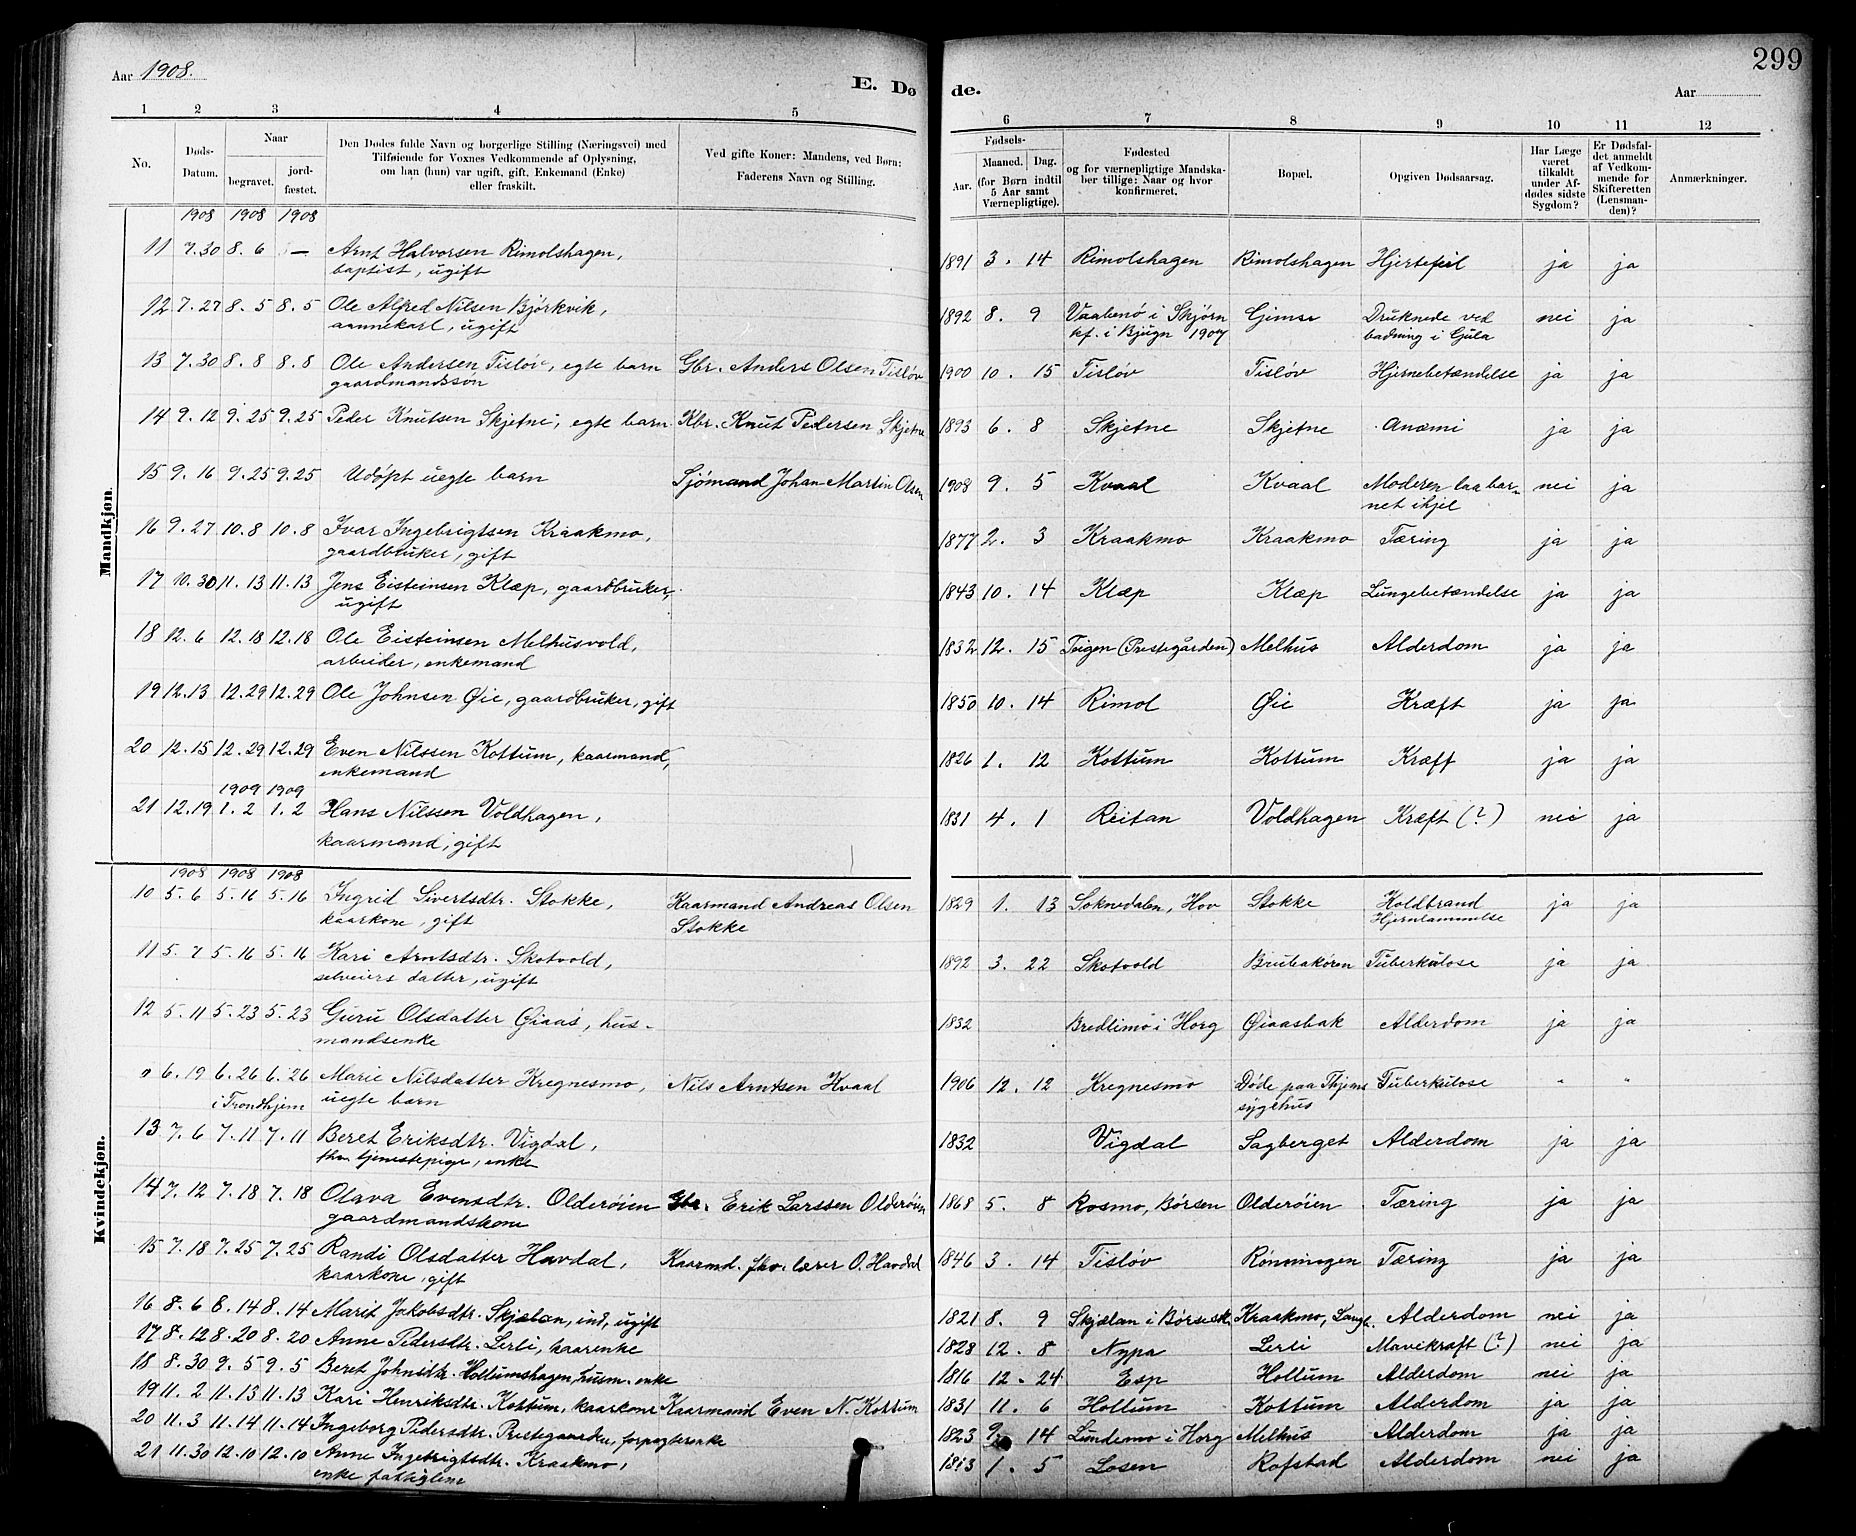 299
Aar 1908.
E. Dø
de.
Aar
1 2 3 4 5
6 7 8 9 10 11 12
No.
Døds-Datum.
Naar
begravet. jordfæstet.
Den Dødes fulde Navn og borgerlige Stilling (Næringsvei) med
Tilføiende for Voxnes Vedkommende af Oplysning,
om han (hun) var ugift, gift, Enkemand (Enke)
eller fraskilt.
Ved gifte Koner: Mandens, ved Børn:
Faderens Navn og Stilling.
Fødsels-
Aar. Maaned. Dag.
(for Børn indtil
5 Aar samt
Værnepligtige).
Fødested
og for værnepligtige Mandska-
ber tillige: Naar og hvor
konfirmeret.
Bopæl.
Opgiven Dødsaarsag.
Har Læge
været
tilkaldt
under Af-
dødes sidste
Sygdom?
Er Dødsfal-
det anmeldt
af Vedkom-
mende for
Skifteretten
(Lensman-
den)?
Anmærkninger.
Mandkjøn.
1908 1908 1908
11 7.30 8.6 — Arnt Halvorsen Rimolshagen, 1891 3. 14 Rimolshagen Rimolshagen Hjertefeil ja ja
baptist, ugift
12 7.27 8.5 8.5 Ole Alfred Nilsen Bjørkvik, 1892 8. 9 Vaabenø i Skjørn Gimse Druknede ved nei ja
aannekarl, ugift kf. i Bjugn 1907 badning i Gula
13 7.30 8.8 8.8 Ole Andersen Tisløv, egte barn Gbr. Anders Olsen Tisløv 1900 10. 15 Tisløv Tisløv Hjernebetændelse ja ja
gaardmandssøn
14 9.12 9.25 9.25 Peder Knutsen Skjetne, egte barn Kbr. Knut Pedersen Skjetne 1893 6. 8 Skjetne Skjetne Anæmi ja ja
15 9.16 9.25 9.25 Udøpt uegte barn Sjømand Johan Martin Olsen 1908 9. 5 Kvaal Kvaal Moderen laa bar- nei ja
net ihjel
16 9.27 10.8 10.8 Ivar Ingebrigtsen Kraakmo, 1877 2. 3 Kraakmo Kraakmo Tæring ja ja
gaardbruker, gift
17 10.30 11.13 11.13 Jens Eisteinsen Klæp, gaardbruker, 1843 10. 14 Klæp Klæp Lungebetændelse ja ja
ugift
18 12.6 12.18 12.18 Ole Eisteinsen Melhusvold, 1832 12. 15 Teigen (Prestegården) Melhus Alderdom ja ja
arbeider, enkemand
19 12.13 12.29 12.29 Ole Johnsen Øie, gaardbruker, gift 1850 10. 14 Rimol Øie Kræft ja ja
20 12.15 12.29 12.29 Even Nilssen Kottum, kaarmand, 1826 1. 12 Kottum Kottum Kræft ja ja
enkemand
1909 1909
21 12.19 1.2 1.2 Hans Nilssen Voldhagen, 1831 4. 1 Reitan Voldhagen Kræft (?) nei ja
kaarmand, gift
Kvindekjøn.
1908 1908 1908
10 5.6 5.16 5.16 Ingrid Sivertsdtr. Stokke, Kaarmand Andreas Olsen 1829 1. 13 Soknedalen, Hov Stokke Koldbrand ja ja
kaarkone, gift Stokke Hjernelammelse
11 5.7 5.16 5.16 Kari Arntsdtr. Skotvold, 1892 3. 22 Skotvold Brubakøren Tuberkulose ja ja
selveiers datter, ugift
12 5.11 5.23 5.23 Guru Olsdatter Øiaas, hus- 1832 Bredlimo i Horg Øiaasbak Alderdom ja ja
mandsenke
0 6.19 6.26 6.26 Marie Nilsdatter Kregnesmo, Nils Arntsen Kvaal 1906 12. 12 Kregnesmo Døde paa Thjems Tuberkulose " "
i Trondhjem uegte barn sygehus
13 7.6 7.11 7.11 Beret Eriksdtr. Vigdal, 1832 Vigdal Sagberget Alderdom ja ja
fhv. tjenestepige, enke
14 7.12 7.18 7.18 Olava Evensdtr. Olderøien Gbr. Erik Larssen Olderøien 1868 5. 8 Rosmo, Børsen Olderøien Tæring ja ja
gaardmandskone
15 7.18 7.25 7.25 Randi Olsdatter Havdal, Kaarmd. fhv. lærer O. Havdal 1846 3. 14 Tisløv Rønningen Tæring ja ja
kaarkone, gift
16 8.6 8.14 8.14 Marit Jakobsdtr. Skjælan, ind, ugift 1821 8. 9 Skjælan i Børsesk. Kraakmo, Langl. Alderdom nei ja
17 8.12 8.20 8.20 Anne Pedersdtr. Lerli, kaarenke 1828 12. 8 Nypa Lerli Mavekræft (?) nei ja
18 8.30 9.5 9.5 Beret Johnsdtr. Hollumshagen, husm. enke 1816 12. 24 Esp Hollum Alderdom nei ja
19 11.2 11.13 11.13 Kari Henriksdtr. Kottum, kaarkone Kaarmand Even N. Kottum 1831 11. 6 Hollum Kottum Alderdom ja ja
20 11.3 11.14 11.14 Ingeborg Pedersdtr. Prestegaarden, forpagterenke 1823 9. 14 Lundemo i Horg Melhus Alderdom ja ja
21 11.30 12.10 12.10 Anne Ingebrigtsdtr. Kraakmo, 1813 1. 5 Losen Rofstad Alderdom nei ja
enke fattiglem